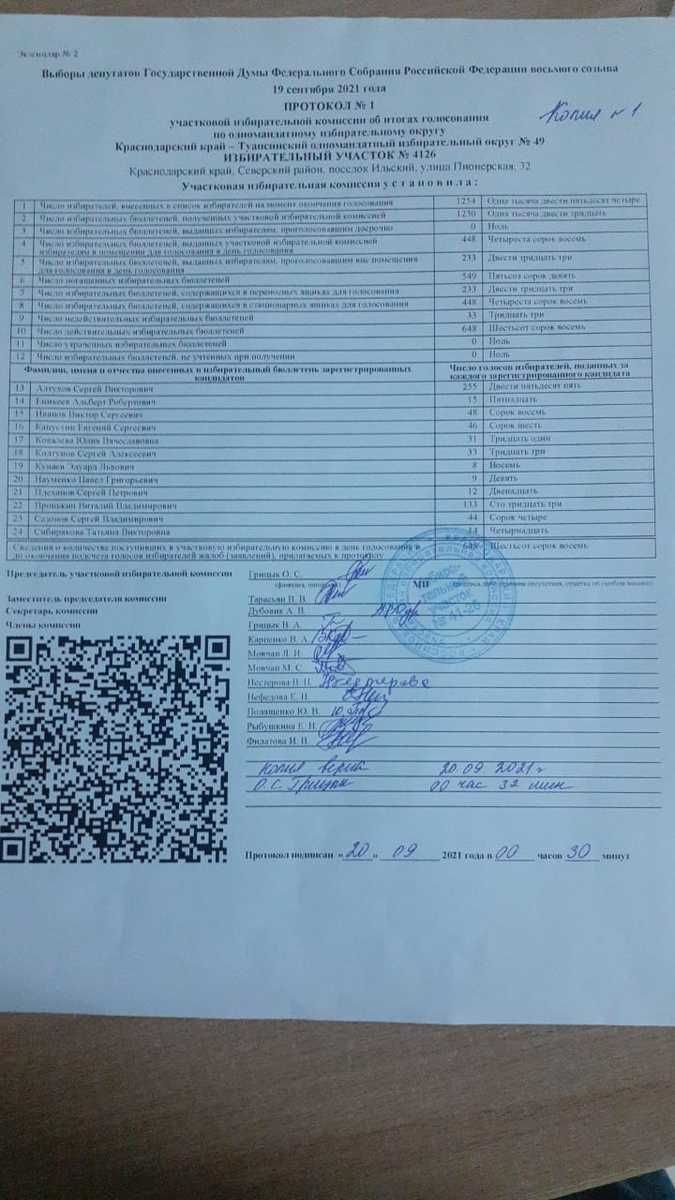 Экземпляр № 2
Выборы депутатов Государственной Думы Федерального Собрания Российской Федерации восьмого созыва
19 сентября 2021 года
ПРОТОКОЛ № 1
Копия №1
участковой избирательной комиссии об итогах голосования
по одномандатному избирательному округу
Краснодарский край – Туапсинский одномандатный избирательный округ № 49
ИЗБИРАТЕЛЬНЫЙ УЧАСТОК № 4126
Краснодарский край, Северский район, поселок Ильский, улица Пионерская, 32
Участковая избирательная комиссия у с т а н о в и л а :
1 Число избирателей, внесенных в список избирателей на момент окончания голосования 1254 Одна тысяча двести пятьдесят четыре
2 Число избирательных бюллетеней, полученных участковой избирательной комиссией 1230 Одна тысяча двести тридцать
3 Число избирательных бюллетеней, выданных избирателям, проголосовавшим досрочно 0 Ноль
4 Число избирательных бюллетеней, выданных участковой избирательной комиссией
избирателям в помещении для голосования в день голосования 448 Четыреста сорок восемь
5 Число избирательных бюллетеней, выданных избирателям, проголосовавшим вне помещения
для голосования в день голосования 233 Двести тридцать три
6 Число погашенных избирательных бюллетеней 549 Пятьсот сорок девять
7 Число избирательных бюллетеней, содержащихся в переносных ящиках для голосования 233 Двести тридцать три
8 Число избирательных бюллетеней, содержащихся в стационарных ящиках для голосования 448 Четыреста сорок восемь
9 Число недействительных избирательных бюллетеней 33 Тридцать три
10 Число действительных избирательных бюллетеней 648 Шестьсот сорок восемь
11 Число утраченных избирательных бюллетеней 0 Ноль
12 Число избирательных бюллетеней, не учтенных при получении 0 Ноль
Фамилии, имена и отчества внесенных в избирательный бюллетень зарегистрированных
кандидатов
Число голосов избирателей, поданных за
каждого зарегистрированного кандидата
13 Алтухов Сергей Викторович 255 Двести пятьдесят пять
14 Еникеев Альберт Робертович 15 Пятнадцать
15 Иванов Виктор Сергеевич 48 Сорок восемь
16 Капустин Евгений Сергеевич 46 Сорок шесть
17 Ковалева Юлия Вячеславовна 31 Тридцать один
18 Колтунов Сергей Алексеевич 33 Тридцать три
19 Кунаев Эдуард Львович 8 Восемь
20 Науменко Павел Григорьевич 9 Девять
21 Плеханов Сергей Петрович 12 Двенадцать
22 Пронькин Виталий Владимирович 133 Сто тридцать три
23 Сазонов Сергей Владимирович 44 Сорок четыре
24 Сибирякова Татьяна Викторовна 14 Четырнадцать
Сведения о количестве поступивших в участковую избирательную комиссию в день голосования и
до окончания подсчета голосов избирателей жалоб (заявлений), прилагаемых к протоколу 648 Шестьсот сорок восемь
Председатель участковой избирательной комиссии Грицык О. С.
МП
Заместитель председателя комиссии Тарасьян В. В.
Секретарь комиссии Дубовик А. В.
Члены комиссии Грицык В. А.
Карпенко В. А.
Мовчан Л. И.
Мовчан М. С.
Нестерова В. П. Нестерова
Нефедова Е. Н.
Полищенко Ю. В.
Рыбушкина Е. И.
Филатова И. В.
№ 41-26
копия верна 20.09 2021 г
О.С. Грицык 00 час 32 мин
Протокол подписан «20» 09 2021 года в 00 часов 30 минут